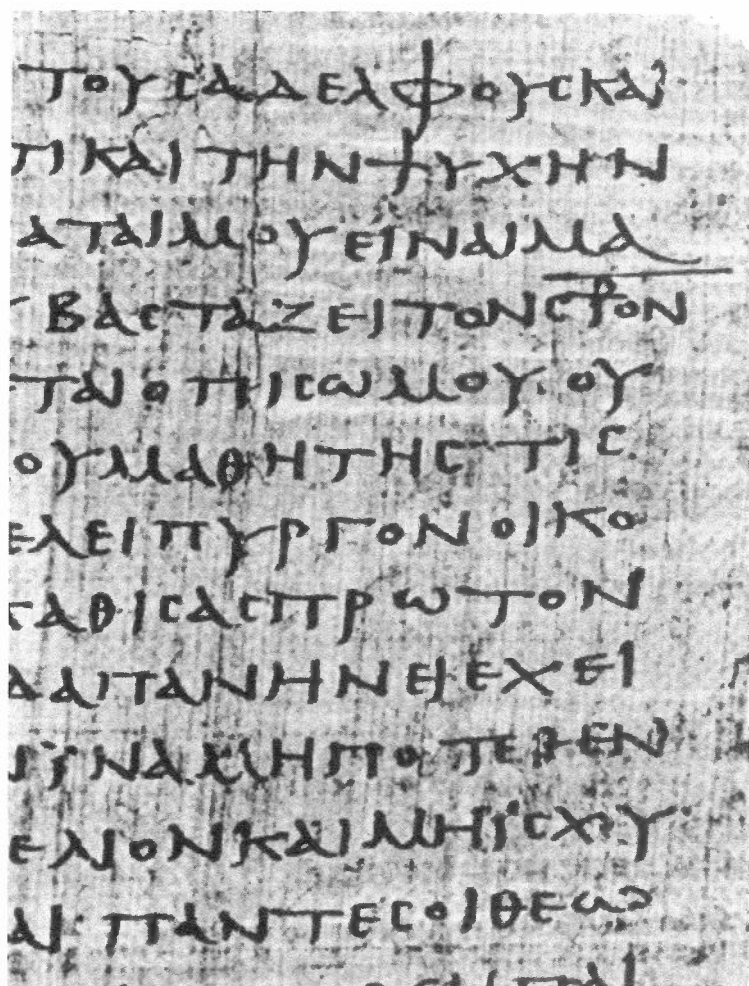 ΤΟΥϹΑΔΕΛΦΟΥϹΚΑΙ
ΤΙΚΑΙΤΗΝΨΥΧΗΝ
ΑΤΑΙΜΟΥΕΙΝΑΙΜΑ
ΒΑϹΤΑΖΕΙΤΟΝϹ⳨ΟΝ
ΤΑΙΟΠΙϹΩΜΟΥ·ΟΥ
ΟΥΜΑΘΗΤΗϹΤΙϹ
ΕΛΕΙΠΥΡΓΟΝΟΙΚΟ
ΚΑΘΙϹΑϹΠΡΩΤΟΝ
ΔΑΠΑΝΗΝΕΙΕΧΕΙ
ΪΝΑΜΗΠΟΤΕΘΕΝ
ΕΛΙΟΝΚΑΙΜΗΪϹΧΥ
ΑΙΠΑΝΤΕϹΟΙΘΕΩ